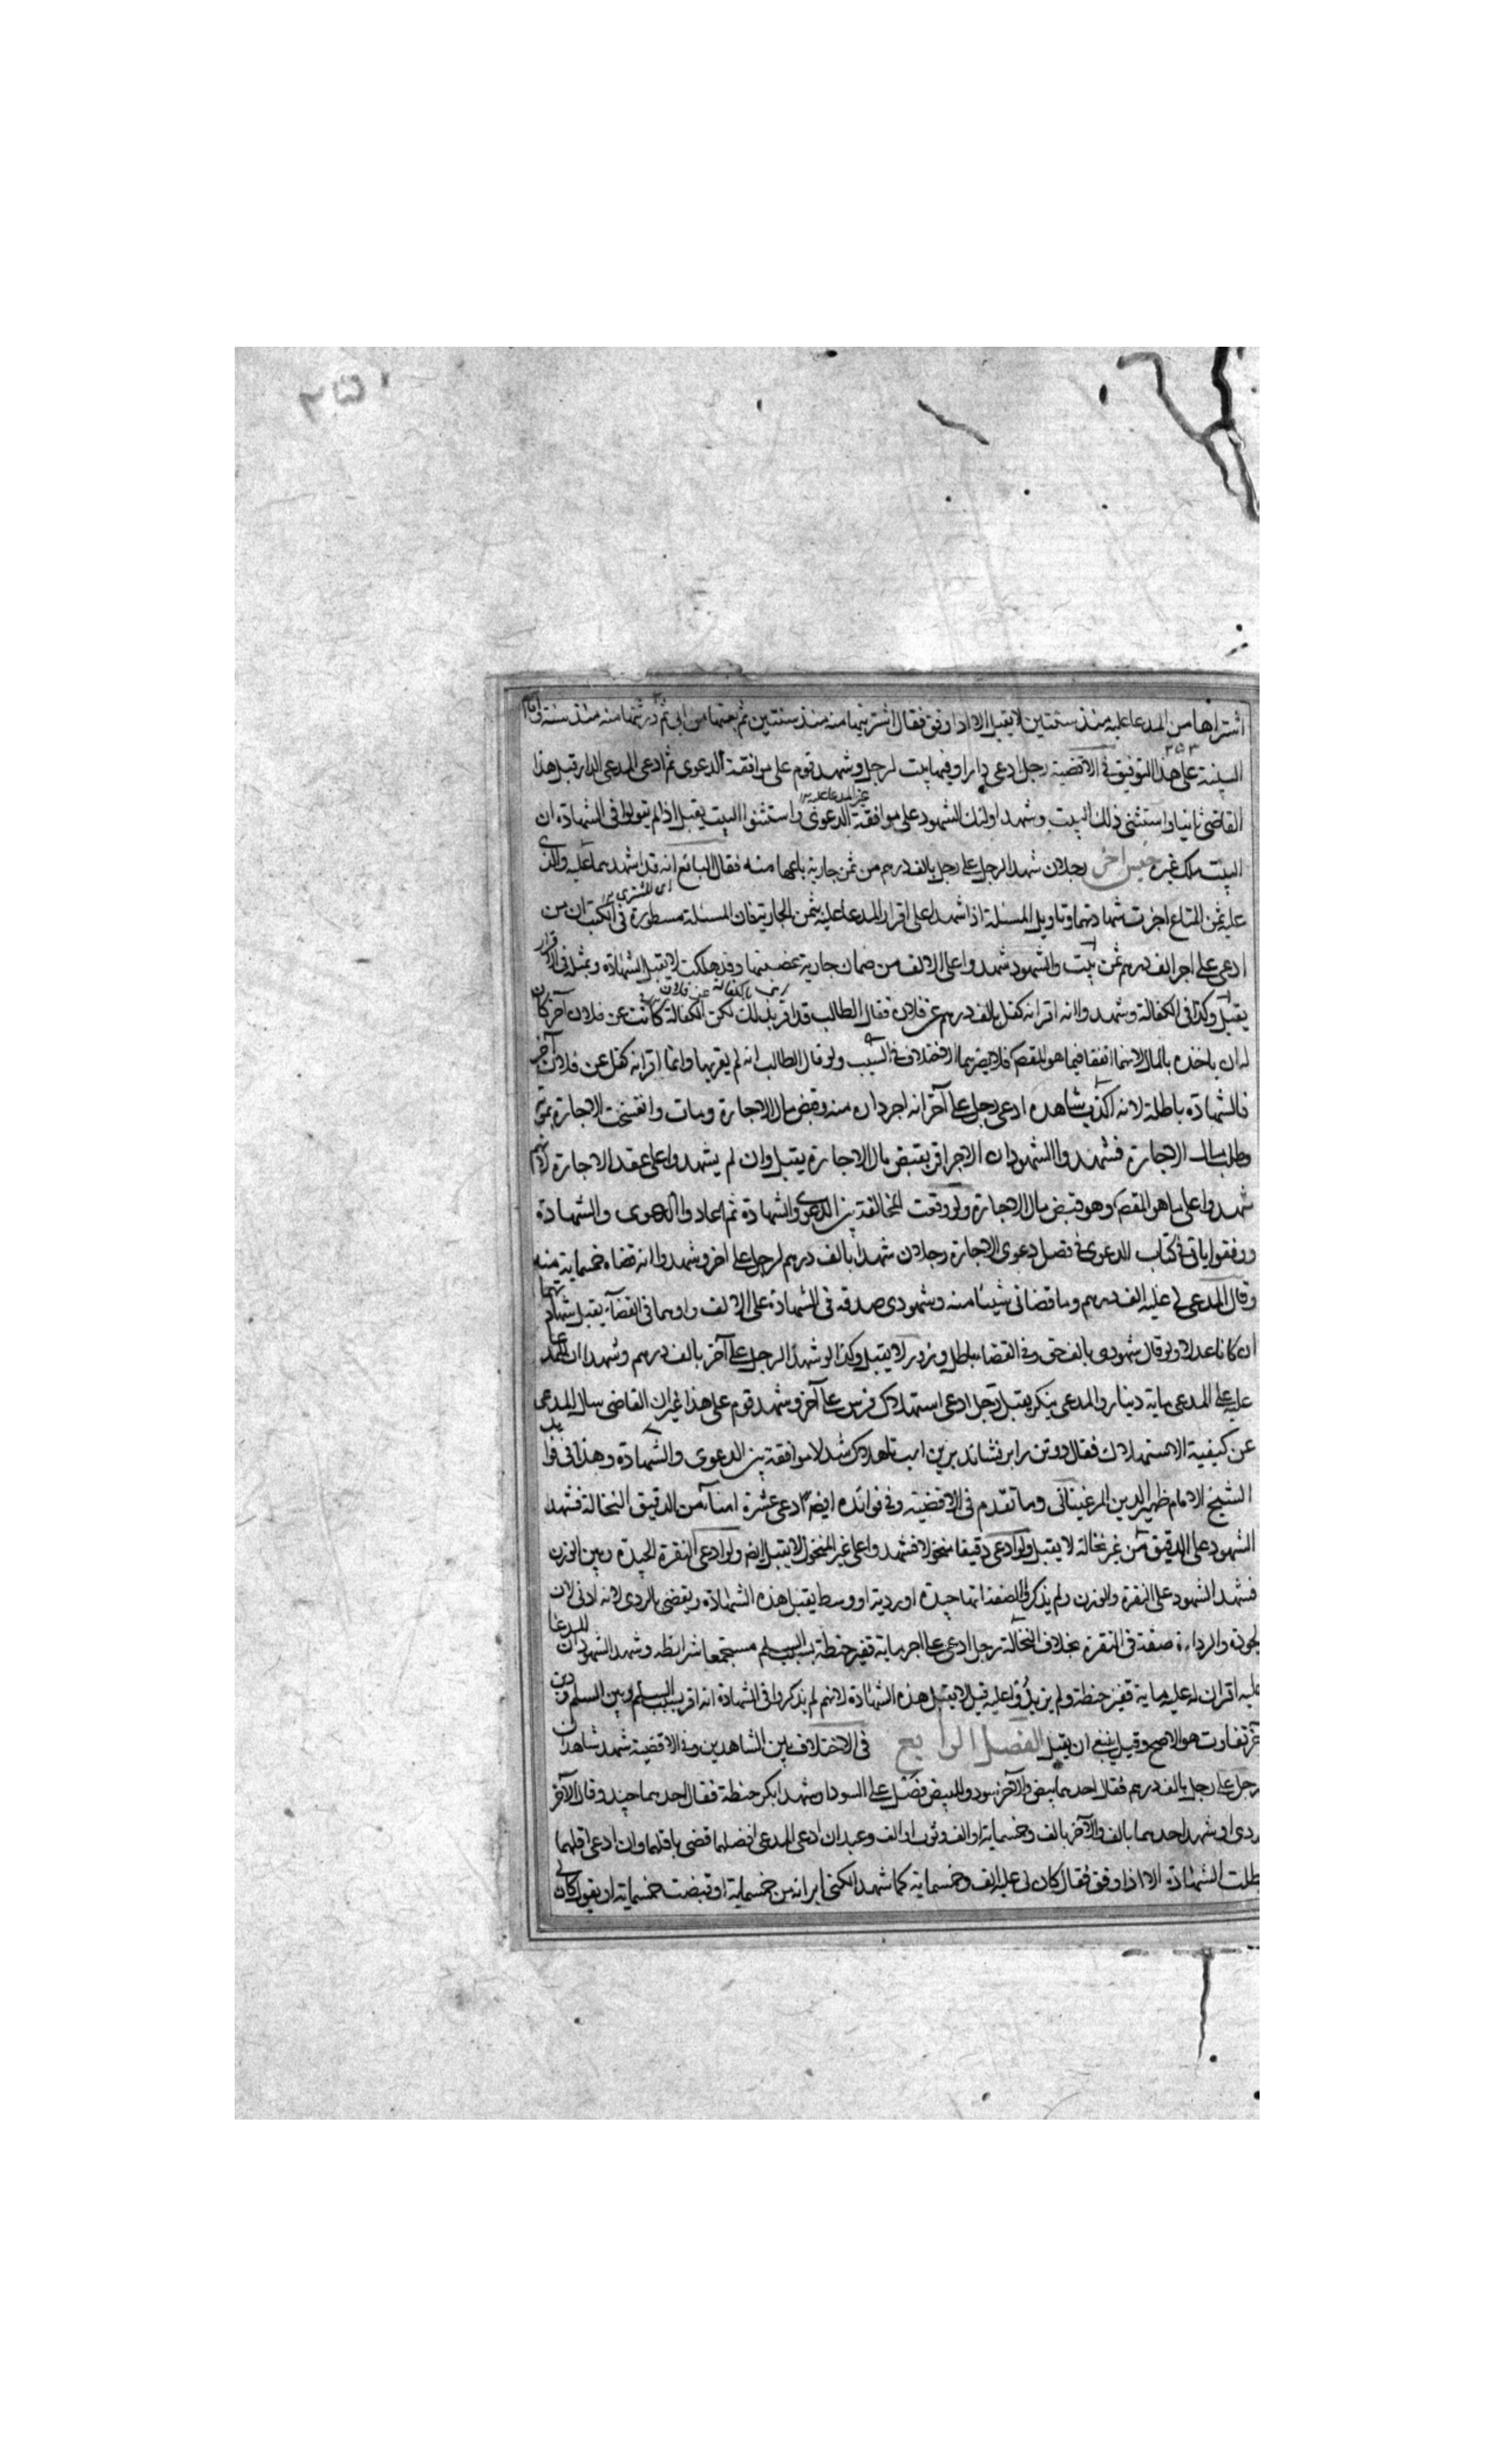 اشتراها من المدعا عليه منذ سنتين لا يقبل الا اذا وفق فقال اشتريتها منه منذ سنتين ثم بعتها من ابي ثم اشتريتها منه منذ سنة واقام
البينة على هذا التوفيق في الاقضية رجل ادعى دارا وفيها بيت لرجل وشهد قوم على موافقة الدعوى ثم ادعى المدعى الدار قبل هذا
القاضي ثانيا واستثنى ذلك البيت وشهد اولئك الشهود على موافقة الدعوى واستثنوا البيت يقبل اذا لم يقولوا في الشهادة ان
البيت ملك غيره جنس اخر رجلان شهدا لرجل على رجل بالف درهم من ثمن جارية باعها منه فقال البايع انه قد اشهدهما عليه والذي
عليه ثمن المتاع اجزت شهادتهما وتاويل المسئلة اذا شهدا على اقرار المدعا عليه بثمن الجارية فان المسئلة مسطورة في الكتب ان من
ادعى على اخر الف درهم ثمن بيت والشهود شهدوا على الالف من ضمان جارية غصبها وقد هلكت لا تقبل الشهادة وبمثله في الاقرار
يقبل وكذا في الكفالة وشهدوا انه اقر انه كفل بالف درهم عن فلان فقال الطالب قد اقر بذلك لكن الكفالة كانت عن فلان آخر كان
له ان ياخذه بالمال لانهما اتفقا فيما هو المقصم فلا يضرهما الاختلاف في السبب ولو قال الطالب انه لم يقر بها وانما اقر انه كفل عن فلان آخر
فالشهادة باطلة لانه اكذب شاهده ادعى رجل على آخر انه اجر داره منه وقبض مال الاجارة ومات وانفسخت الاجارة بموته
وطلب مال الاجارة فشهدوا الشهود ان الاجر اقر بقبض مال الاجارة يقبل وان لم يشهدوا على عقد الاجارة لانهم
شهدوا على ما هو المقصم وهو قبض مال الاجارة ولو وقعت المخالفة بين الدعوى والشهادة ثم اعادوا الدعوى والشهادة
ووفقوا ياتي في كتاب الدعوى في فصل دعوى الاجارة رجلان شهدا بالف درهم لرجل على اخر وشهدوا انه قضاه خمسماية منه
وقال المدعي لي عليه الف درهم وما قضاني شيئا منه وشهودي صدقه في الشهادة على الالف واوهما في القضاء يقبل شهادتهما
ان كانا عدلا ولو قال شهودي بالف حق وفي القضاء باطل وزور لا يقبل وكذا لو شهدا لرجل على آخر بالف درهم وشهدا ان للمدعا
عليه على المدعى ماية دينار والمدعي ينكر يقبل رجل ادعى استهلاك فرس على آخر وشهد قوم على هذا غير ان القاضي سال المدعي
عن كيفية الاستهلاك فقال دو تن را بر نشاند برين اسب تا هلاك شد لا موافقة بين الدعوى والشهادة وهذا في فوايد
الشيخ الامام ظهير الدين المرغيناني وما تقدم في الاقضية وفي فوائده ايضا ادعى عشرة امناء من الدقيق النخالة فشهد
الشهود على الدقيق من غير نخالة لا يقبل ولو ادعى دقيقا منخولا فشهدوا على غير المنخول لا يقبل ايضا ولو ادعى النقرة الجيدة وبين الوزن
فشهد الشهود على النقرة والوزن ولم يذكروا الصفة انها جيدة او ردية او وسط يقبل هذه الشهادة ويقضي بالردي لانه ادنى لان
الجودة والرداءة صفة في النقرة بخلاف النخالة رجل ادعى على اخر ماية قفيز حنطة بسبب السلم مستجمعا شرائطه وشهد الشهود ان للمدعا
عليه اقر ان له عليه ماية قفيز حنطة ولم يزيدوا عليه قيل لا يقبل هذه الشهادة لانهم لم يذكروا في الشهادة انه اقر بسبب السلم وبين السلم ودين
آخر تفاوت هو الاصح وقيل ينبغي ان يقبل الفصل الرابع في الاختلاف بين الشاهدين وفي الاقضية شهد شاهدان
لرجل على رجل بالف درهم فقال احدهما بيض والآخر سود وللبيض فضل على السود او شهدا بكر حنطة فقال احدهما جيد وقال الآخر
ردي او شهد احدهما بالف والآخر بالف وخمسماية او الف وثوب او الف وعبد ان ادعى المدعي افضلهما قضي باقلهما وان ادعى اقلهما
بطلت الشهادة الا اذا وفق فقال كان لي عليه الف وخمسماية كما شهد لكني ابراته من خمسماية او قبضت خمسماية او يقول كان لي